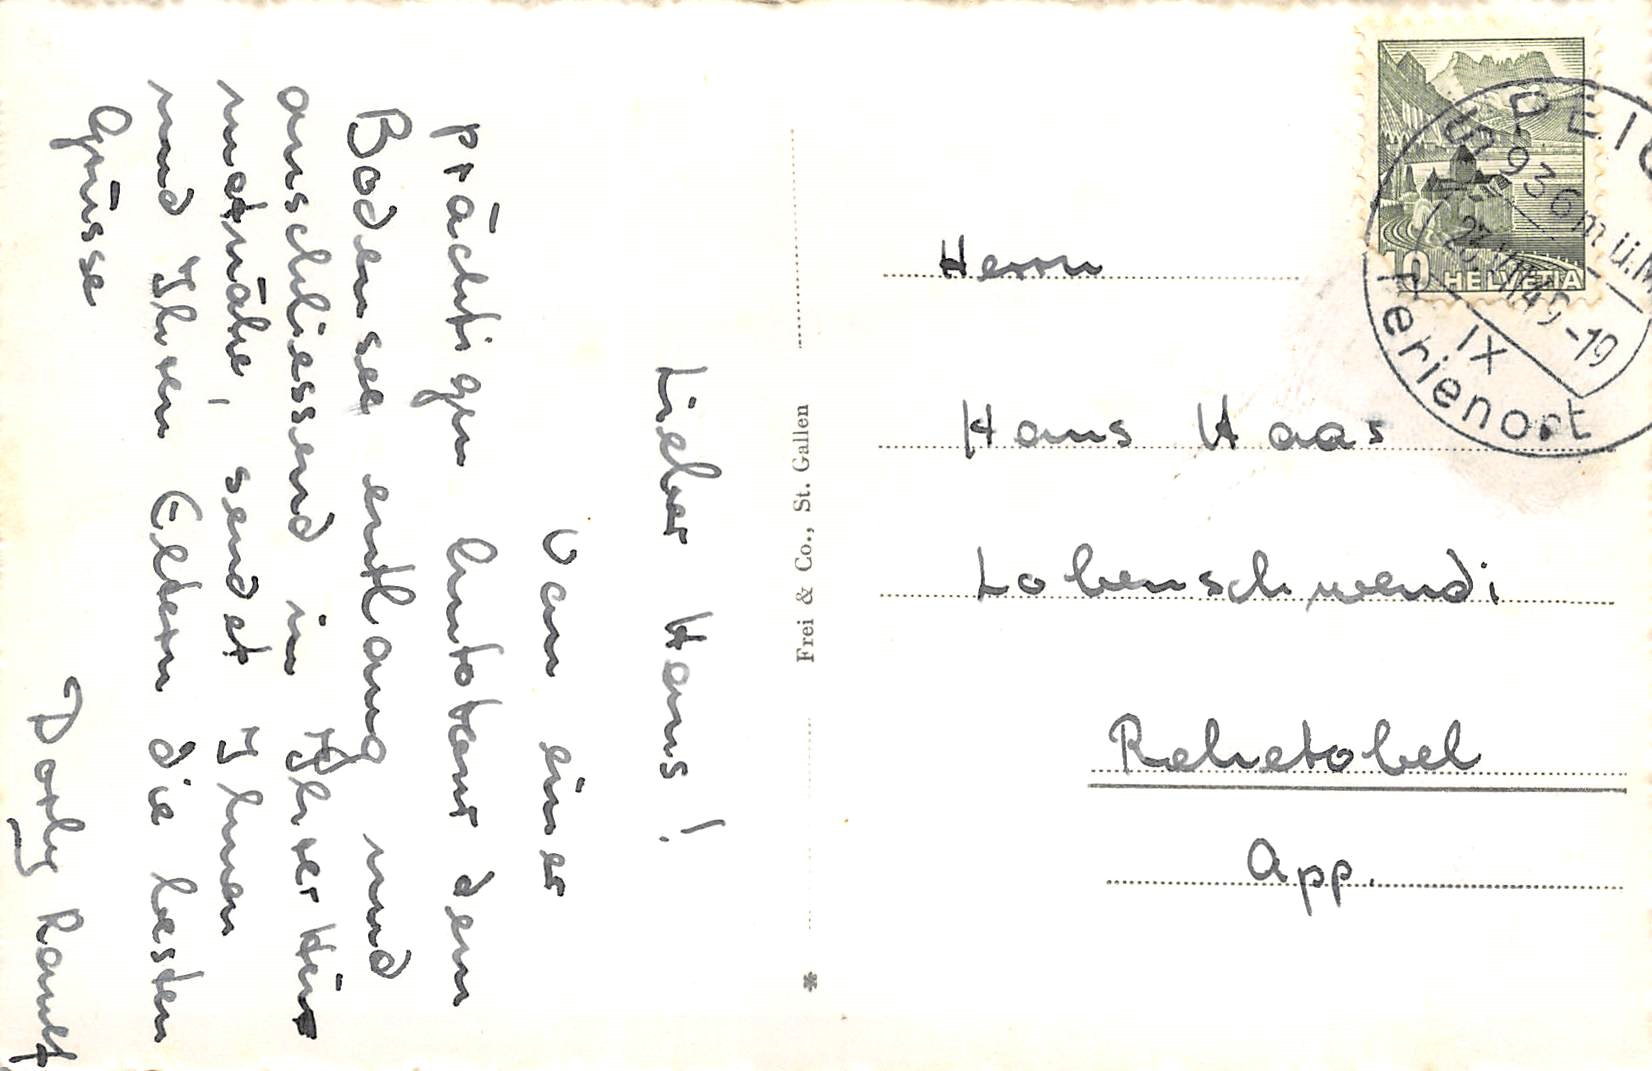 Lieber Hans!
Von einer
prächtigen Autotour dem
Bodensee entlang und
anschliessend in Ihrer
sendet Ihnen
und Ihren Eltern die besten
Grüsse
Dorly
Frei & Co., St. Gallen
*
Herrn
Hans Haas
Lobenschwendi
Rehetobel
App.
HELVETIA
10
SPEIC
936 m ü.M
-19
IX
Ferienort